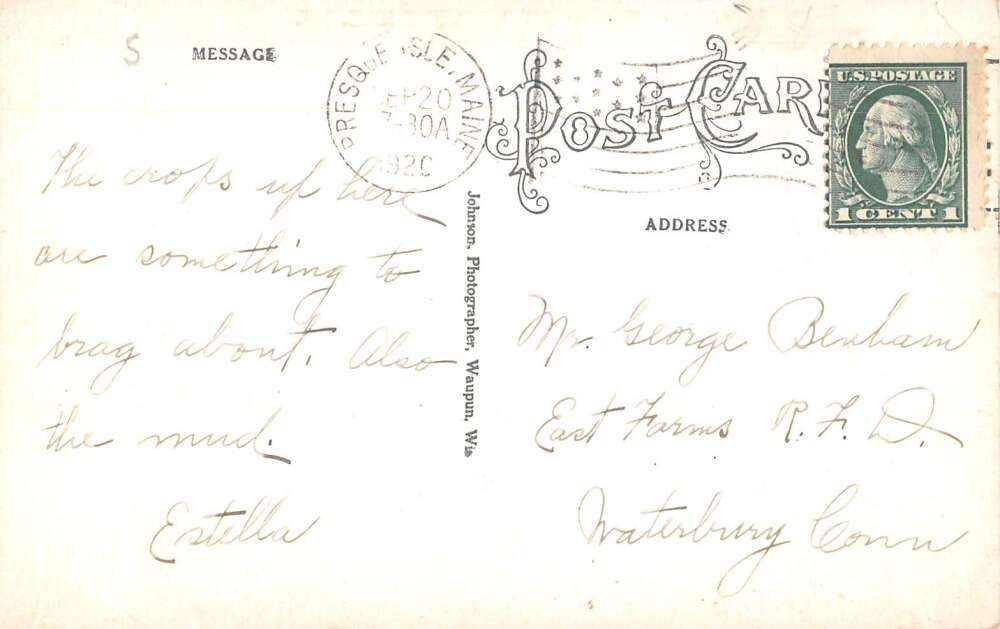 S
MESSAGE
The crops up here
are something to
brag about. Also
the mud.
Estella
Johnson, Photographer, Waupun, Wis
PRESQUE ISLE, MAINE
20
7-30A
1920
POST CARD
U.S. POSTAGE
1 CENT 1
ADDRESS
Mr. George Benham
East Farms R. F. D.
Waterbury Conn